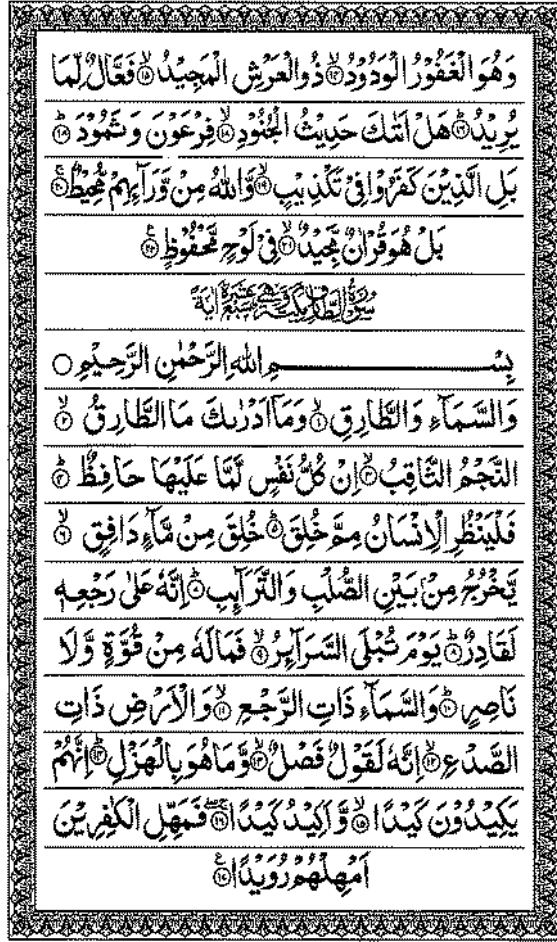 وَهُوَ الْغَفُوْرُ الْوَدُوْدُ ۙ﴿۱۴﴾ ذُو الْعَرْشِ الْمَجِيْدُ ۙ﴿۱۵﴾ فَعَّالٌ لِّمَا
يُرِيْدُ ؕ﴿۱۶﴾ هَلْ اَتٰىكَ حَدِيْثُ الْجُنُوْدِ ۙ﴿۱۷﴾ فِرْعَوْنَ وَ ثَمُوْدَ ؕ﴿۱۸﴾
بَلِ الَّذِيْنَ كَفَرُوْا فِيْ تَكْذِيْبٍ ۙ﴿۱۹﴾ وَّاللّٰهُ مِنْ وَّرَآئِهِمْ مُّحِيْطٌ ۚ﴿۲۰﴾
بَلْ هُوَ قُرْاٰنٌ مَّجِيْدٌ ۙ﴿۲۱﴾ فِيْ لَوْحٍ مَّحْفُوْظٍ ﴿۲۲﴾
سُوْرَةُ الطَّارِقِ مَكِّيَّةٌ وَّهِيَ سَبْعَ عَشْرَةَ اٰيَةً
بِسْمِ اللّٰهِ الرَّحْمٰنِ الرَّحِيْمِ ○
وَالسَّمَآءِ وَالطَّارِقِ ۙ﴿۱﴾ وَمَاۤ اَدْرٰىكَ مَا الطَّارِقُ ۙ﴿۲﴾
النَّجْمُ الثَّاقِبُ ۙ﴿۳﴾ اِنْ كُلُّ نَفْسٍ لَّمَّا عَلَيْهَا حَافِظٌ ؕ﴿۴﴾
فَلْيَنْظُرِ الْاِنْسَانُ مِمَّ خُلِقَ ؕ﴿۵﴾ خُلِقَ مِنْ مَّآءٍ دَافِقٍ ۙ﴿۶﴾
يَّخْرُجُ مِنْۢ بَيْنِ الصُّلْبِ وَالتَّرَآئِبِ ؕ﴿۷﴾ اِنَّهٗ عَلٰى رَجْعِهٖ
لَقَادِرٌ ؕ﴿۸﴾ يَوْمَ تُبْلَى السَّرَآئِرُ ۙ﴿۹﴾ فَمَا لَهٗ مِنْ قُوَّةٍ وَّلَا
نَاصِرٍ ؕ﴿۱۰﴾ وَالسَّمَآءِ ذَاتِ الرَّجْعِ ۙ﴿۱۱﴾ وَالْاَرْضِ ذَاتِ
الصَّدْعِ ۙ﴿۱۲﴾ اِنَّهٗ لَقَوْلٌ فَصْلٌ ۙ﴿۱۳﴾ وَّمَا هُوَ بِالْهَزْلِ ؕ﴿۱۴﴾ اِنَّهُمْ
يَكِيْدُوْنَ كَيْدًا ۙ﴿۱۵﴾ وَّاَكِيْدُ كَيْدًا ۚ﴿۱۶﴾ فَمَهِّلِ الْكٰفِرِيْنَ
اَمْهِلْهُمْ رُوَيْدًا ﴿۱۷﴾